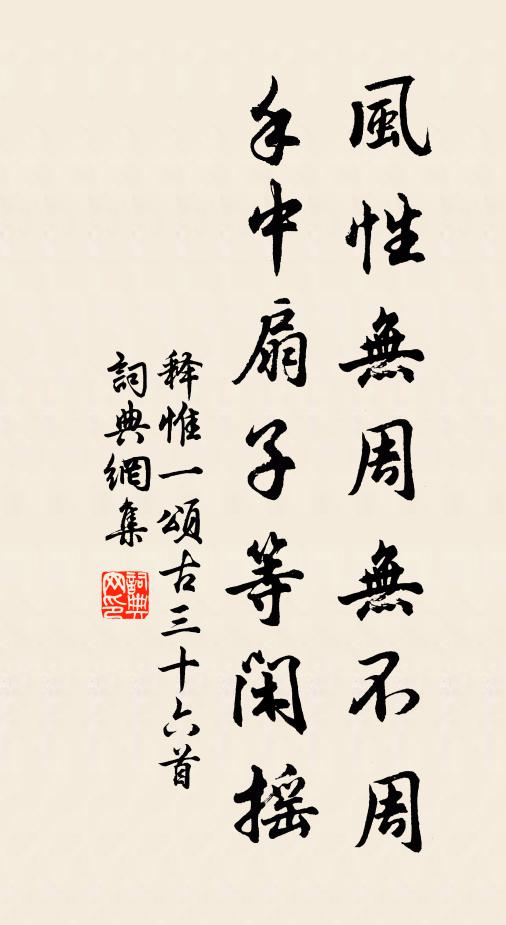 風性無周無不周
手中扇子等閑摇
释惟一頌古三十六首
詞典網集
詞典网印